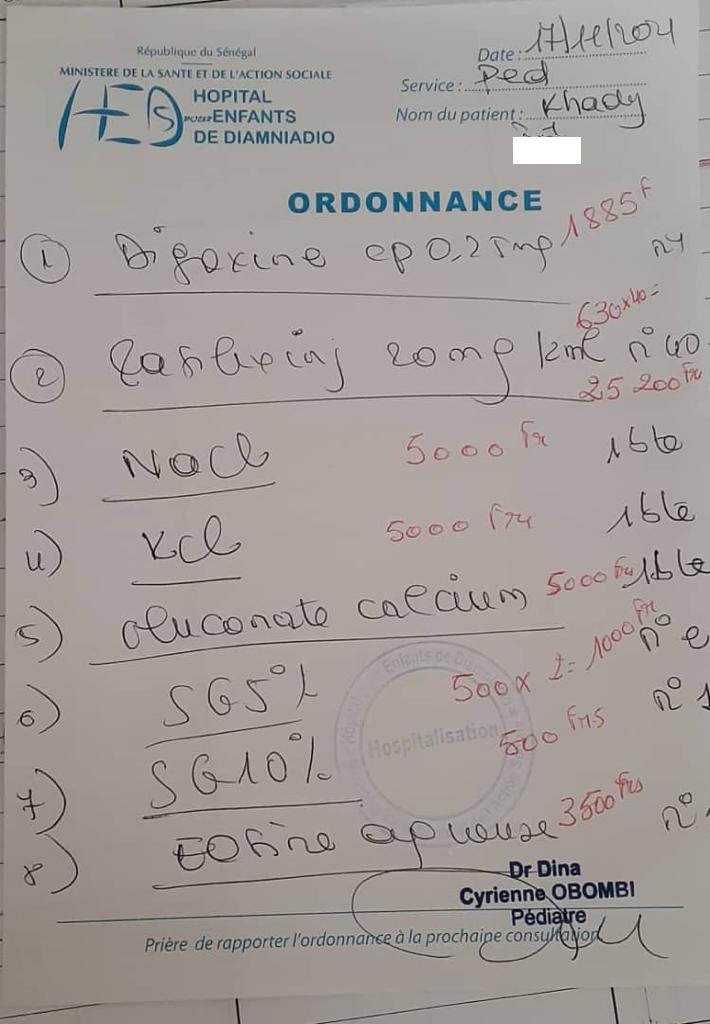 République du Sénégal
MINISTERE DE LA SANTE ET DE L'ACTION SOCIALE
HED pour
HOPITAL
ENFANTS
DE DIAMNIADIO
Date : 17/11/2021
Service : Ped
Nom du patient : Khady
ORDONNANCE
1 Digoxine cp 0,25mg 1885 F
630x40=
2 20mg n° 40
25 200 Frs
3) NaCl 5000 Frs 1bte
4) KCl 5000 Frs 1bte
5) Gluconate calcium 5000 Frs 1bte
6) SG5% 500 x 2 = 1000 Frs n°
7) SG10% 500 Frs n° 1
8) Eosine aqueuse 3500 frs n°
Hospitalisation
Dr Dina
Cyrienne OBOMBI
Pédiatre
Prière de rapporter l'ordonnance à la prochaine consultation